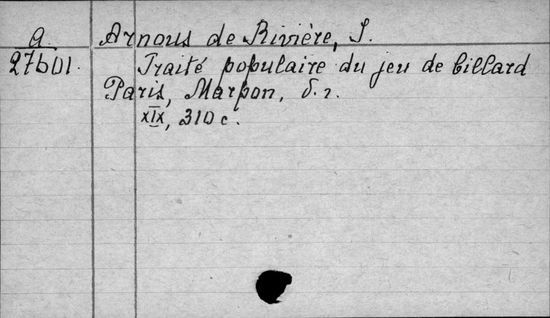 A
27601.
Arnous de Rivière, J.
Traité populaire du jeu de billard
Paris, Marpon, б. г.
XIX, 310 c.